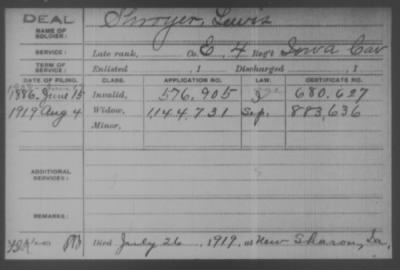 DEAL
NAME OF SOLDIER: Shroyer, Lewis
SERVICE: Late rank, Co. E, 4 Reg't Iowa Cav
TERM OF SERVICE: Enlisted , 1 Discharged , 1
DATE OF FILING. CLASS. APPLICATION NO. LAW. CERTIFICATE NO.
1886, June 15 Invalid, 576,905 680,627
1919 Aug 4 Widow, 1,144,731 Sep. 883,636
Minor,
ADDITIONAL SERVICES:
REMARKS:
Died July 26, 1919, at New Sharon, Ia,